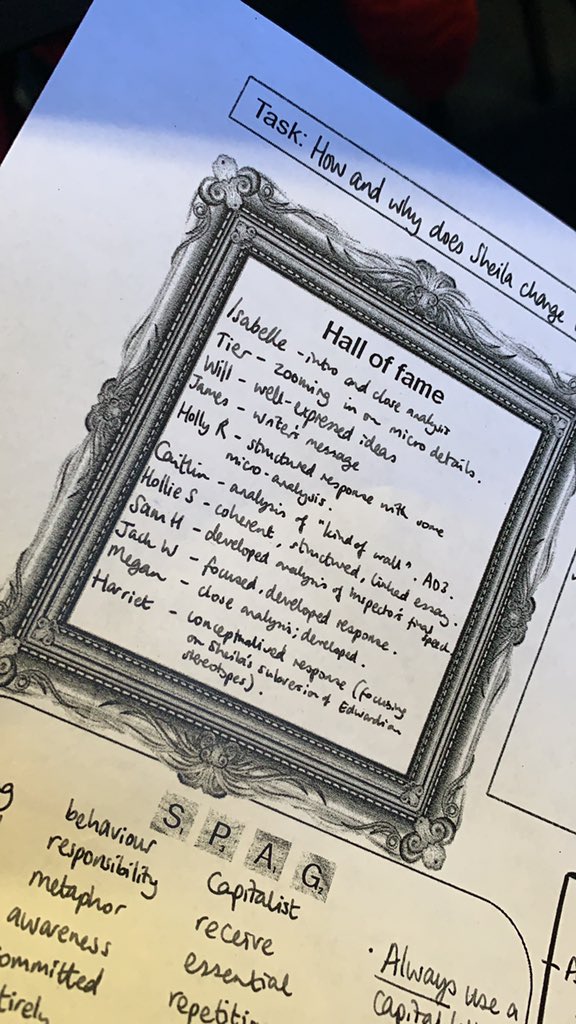 Task: How and why does Sheila change
Hall of fame
Isabelle - intro and close analysis
Tier - zooming in on micro details.
Will - well-expressed ideas
James - writer's message
Holly R - structured response with some
micro-analysis.
Caitlin - analysis of "kind of wall". AO3.
Hollie S - coherent, structured, linked essay.
Sam H - developed analysis of Inspector's final speech
Jack W - focused, developed response.
Megan - close analysis; developed.
Harriet - conceptualised response (focusing
on Sheila's subversion of Edwardian
stereotypes).
S P A G
behaviour
responsibility
metaphor
awareness
ommitted
tirely
Capitalist
receive
essential
repetiti
· Always use a
capital